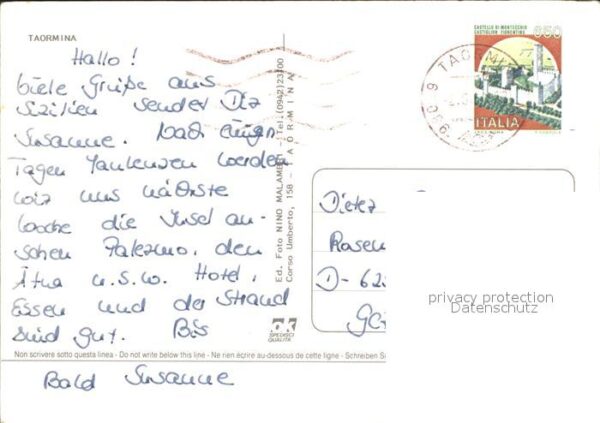 TAORMINA
Hallo!
Viele Grüße aus
Sizilien sendet Dir
Susanne. Nach einigen
Tagen Faulenzen werden
wir uns nächste
Woche die Insel an-
sehen Palermo, den
Ätna u.s.w. Hotel,
Essen und der Strand
sind gut. Bis
Non scrivere sotto questa linea - Do not write below this line - Ne rien écrire au-dessous de cette ligne - Schreiben S
Bald Susanne
Ed. Foto NINO MALAMBRÌ - Tel. (0942) 23700
Corso Umberto, 158 - TAORMINA
AK
SPEDISCI
QUALITÀ
CASTELLO DI MONTECCHIO
CASTIGLION FIORENTINO
650
ITALIA
TAORMINA
Dieter
Rosen
D-62
Ge
privacy protection
Datenschutz